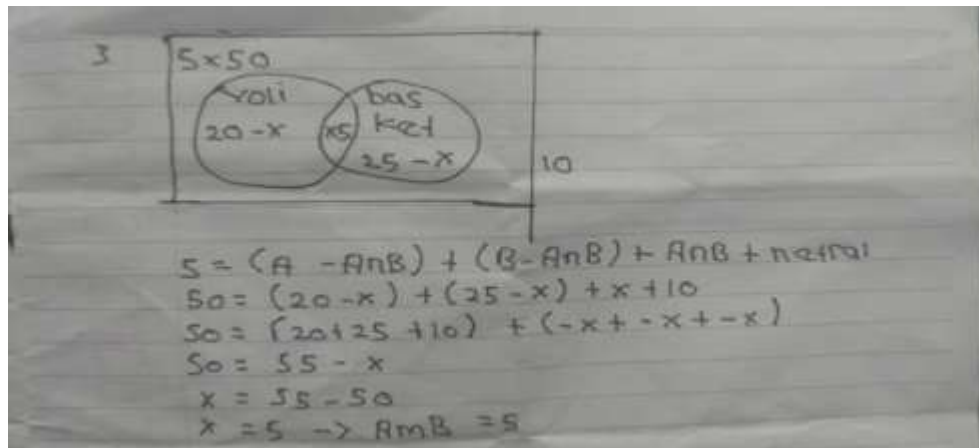 3
5x50
voli bas
ket
20-x x5
25-x
10
S = (A - A∩B) + (B-A∩B) + A∩B + netral
50 = (20-x) + (25-x) + x + 10
50 = (20+25+10) + (-x + -x + -x)
50 = 55 - x
x = 55-50
x = 5 -> A∩B = 5